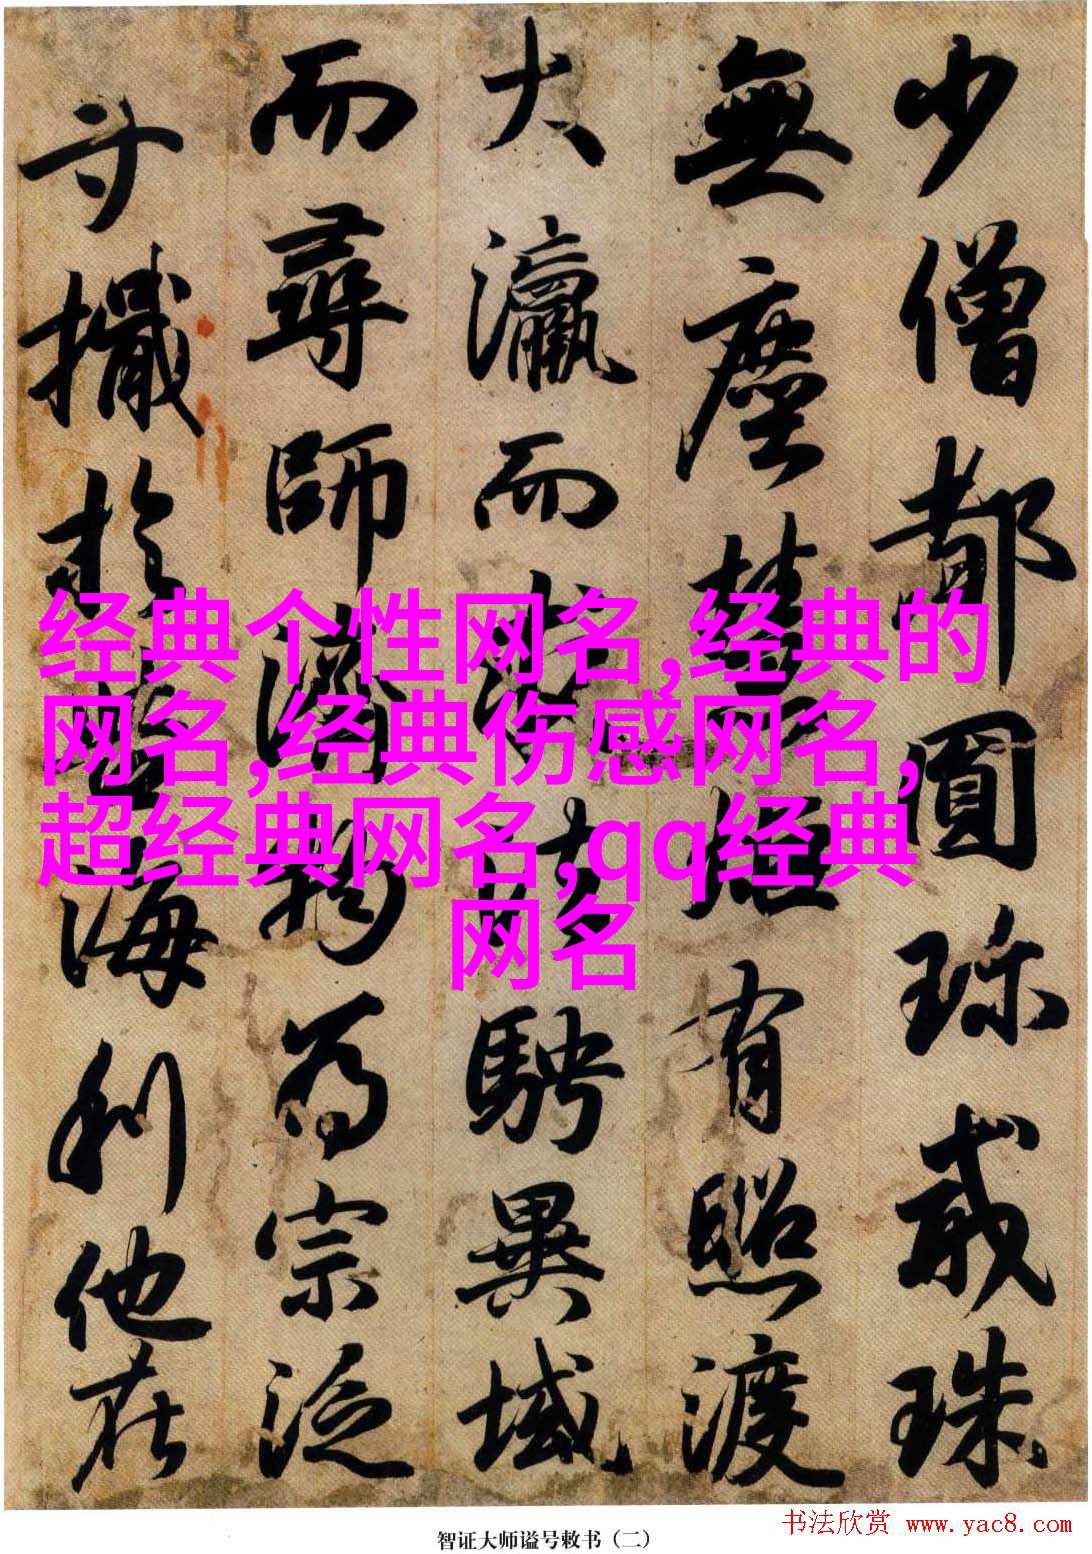 少僧都圓珍戒珠
無塵慧炬有照渡
大瀛而求法騁異域
而尋師濟物為宗泛
寸於海利他在
经典个性网名,经典的
网名,经典伤感网名,
超经典网名,qq经典
网名
智证大师谥号敕书（二）
书法欣赏 www.yac8.com